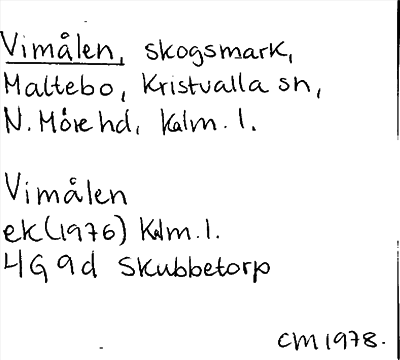 Vimålen, skogsmark,
Maltebo, Kristvalla sn,
N. Möre hd, Kalm. l.
Vimålen
ek (1976) Kalm. l.
4G 9d Skubbetorp
CM 1978.